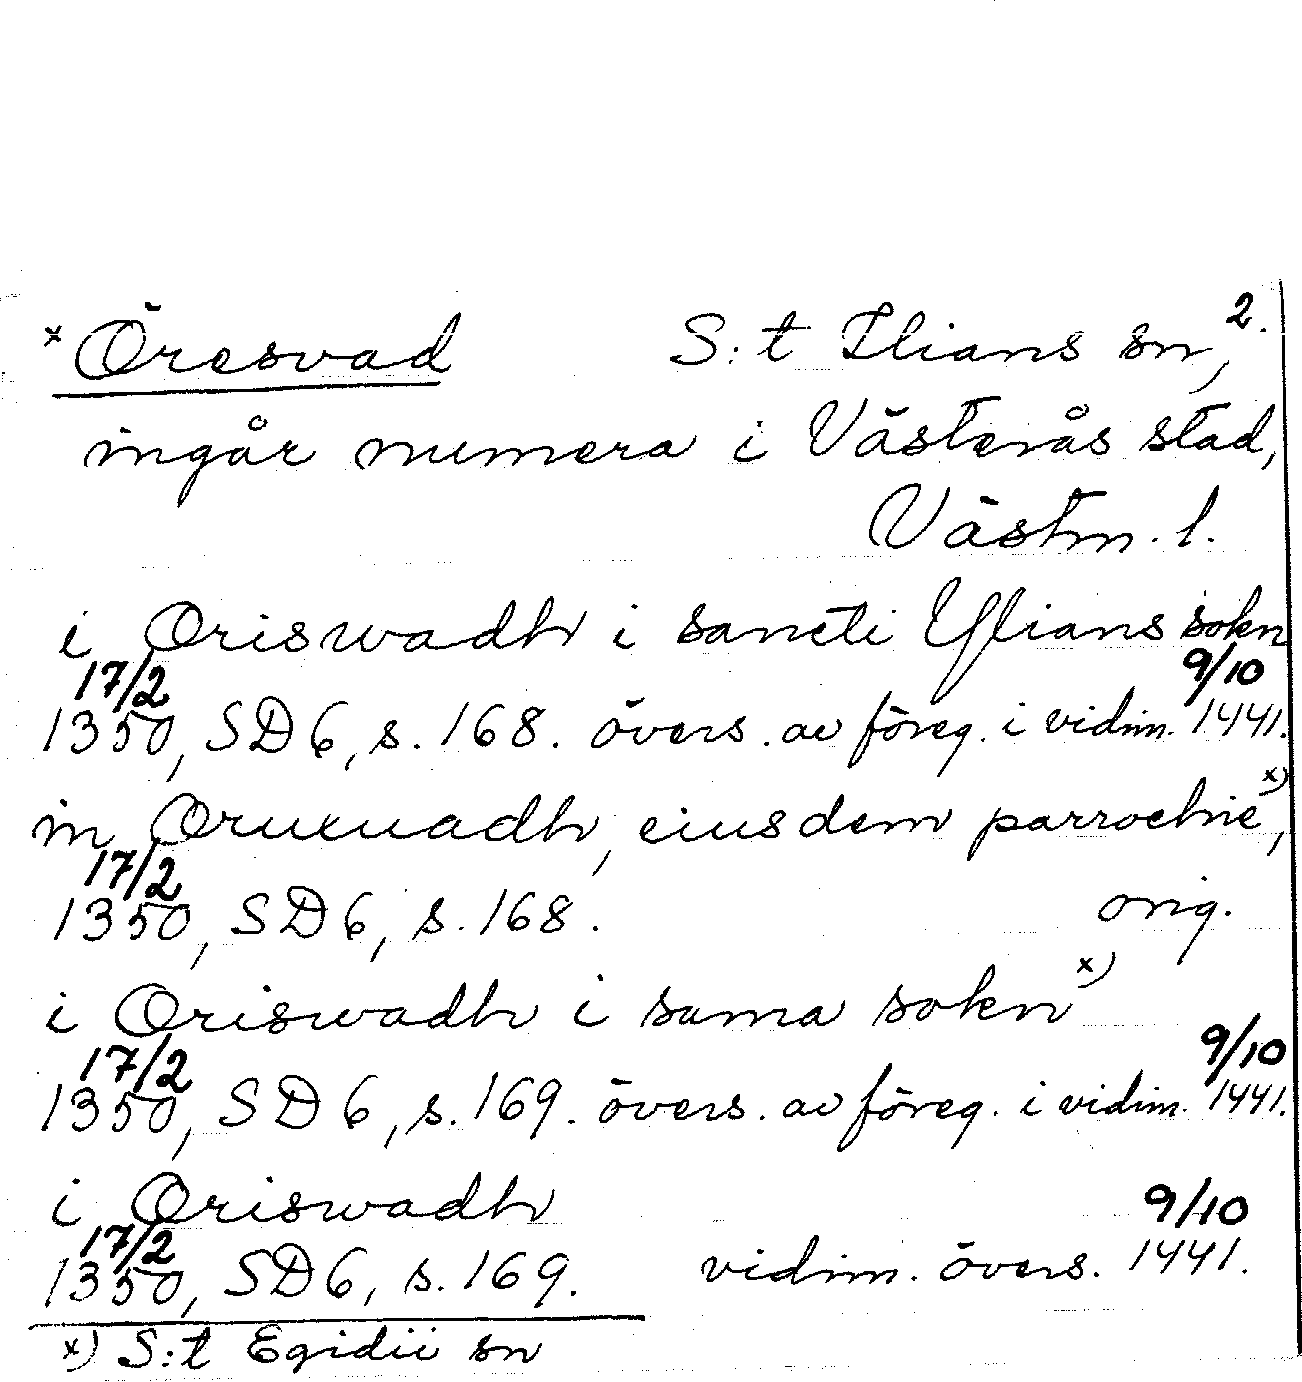 x Öresvad S:t Ilians sn, 2.
ingår numera i Västerås stad,
Västm. l.
i Oriswadh i sancti Ylians sokn
17/2 1350, SD 6, s. 168. övers. av föreg. i vidim. 9/10 1441.
in Orueuadh, eiusdem parrochie x),
17/2 1350, SD 6, s. 168. orig.
i Oriswadh i sama sokn x)
17/2 1350, SD 6, s. 169. övers. av föreg. i vidim. 9/10 1441.
i Oriswadh
17/2 1350, SD 6, s. 169. vidim. övers. 9/10 1441.
x) S:t Egidii sn